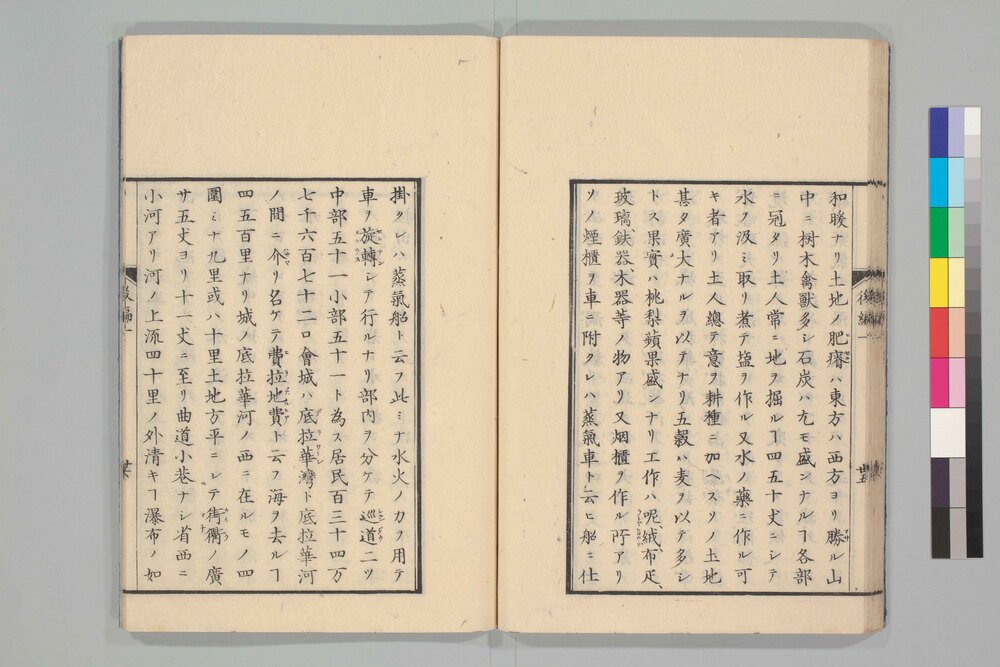 和暖ナリ土地ノ肥瘠ハ東方ハ西方ヨリ勝ル山
中ニ樹木禽獸多シ石炭ハ尤モ盛ンナルヿ各部
ニ冠タリ土人常ニ地ヲ掘ルヿ四五十丈ニシテ
水ヲ汲ミ取リ煮テ塩ヲ作ル又水ノ藥ニ作ル可
キ者アリ土人總テ意ヲ耕種ニ加ヘスソノ土地
甚タ廣大ナルヲ以テナリ五穀ハ麦ヲ以テ多シ
トス果實ハ桃梨蘋果盛ンナリ工作ハ呢絨、布疋、
玻璃、鉄器、木器等ノ物アリ又烟櫃ヲ作ル所アリ
ソノ煙櫃ヲ車ニ附クレハ蒸氣車ト云ヒ船ニ仕
後編一
廿五
掛クレハ蒸氣船ト云フ此ミナ水火ノ力ヲ用テ
車ヲ旋轉シテ行ルナリ部内ヲ分ケテ巡道二ツ
中部五十一小部五十一ト為ス居民百三十四万
七千六百七十二口會城ハ底拉華灣ト底拉華河
ノ間ニ介リ名ケテ費拉地費ト云フ海ヲ去ルヿ
四五百里ナリ城ノ底拉華河ノ西ニ在ルモノ四
圍ミナ九里或ハ十里土地方平ニシテ街衢ノ廣
サ五丈ヨリ十一丈ニ至リ曲道小巷ナシ省西ニ
小河アリ河ノ上流四十里ノ外清キヿ瀑布ノ如
後編一